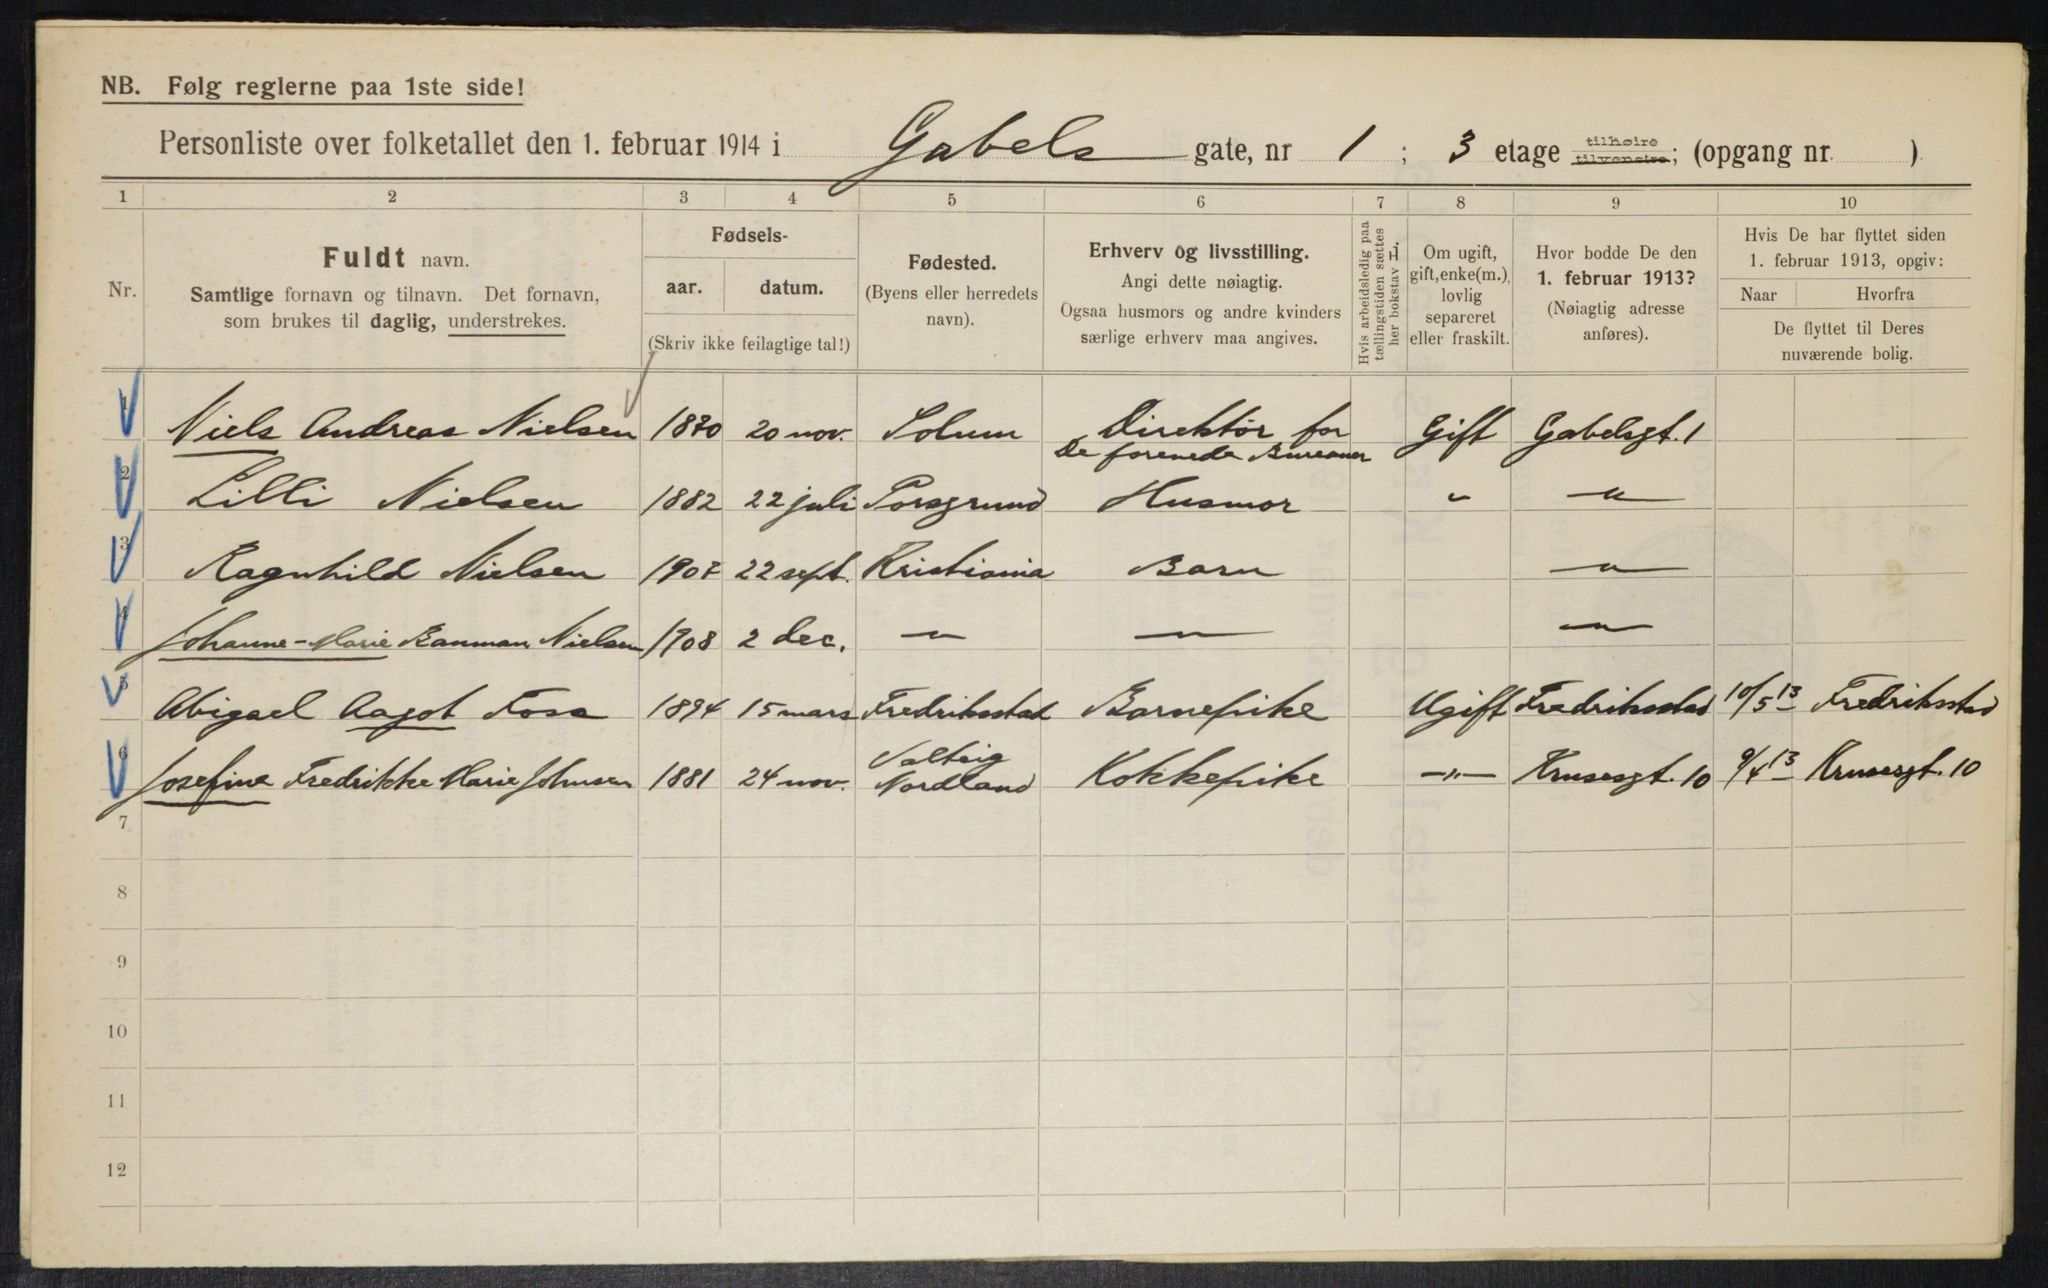 NB. Følg reglerne paa 1ste side!
Personliste over folketallet den 1. februar 1914 i Gabels gate, nr 1 ; 3 etage tilhøire tilvenstre; (opgang nr. )
1 2 3 4 5 6 7 8 9 10
Nr.
Fuldt navn.
Samtlige fornavn og tilnavn. Det fornavn,
som brukes til daglig, understrekes.
Fødsels-
aar. datum.
(Skriv ikke feilagtige tal!)
Fødested.
(Byens eller herredets
navn).
Erhverv og livsstilling.
Angi dette nøiagtig.
Ogsaa husmors og andre kvinders
særlige erhverv maa angives.
Hvis arbeidsledig paa
tællingstiden sættes
her bokstav L.
Om ugift,
gift, enke(m.),
lovlig
separeret
eller fraskilt.
Hvor bodde De den
1. februar 1913?
(Nøiagtig adresse
anføres).
Hvis De har flyttet siden
1. februar 1913, opgiv:
Naar Hvorfra
De flyttet til Deres
nuværende bolig.
1 Niels Andreas Nielsen 1870 20 nov. Solum Direktør for De forenede Bureauer Gift Gabelsgt. 1
2 Lilli Nielsen 1882 22 juli Porsgrund Husmor " — " —
3 Ragnhild Nielsen 1907 22 sept. Kristiania Barn — " —
4 Johanne-Marie Bauman Nielsen 1908 2 dec. — " — — " — — " —
5 Abigael Aagot Foss 1894 15 mars Fredriksstad Barnepike Ugift Fredriksstad 10/5 13 Fredriksstad
6 Josefine Fredrikke Marie Johnsen 1881 24 nov. Nordland Kokkepike — " — Krusesgt. 10 9/4 13 Krusesgt. 10
7
8
9
10
11
12